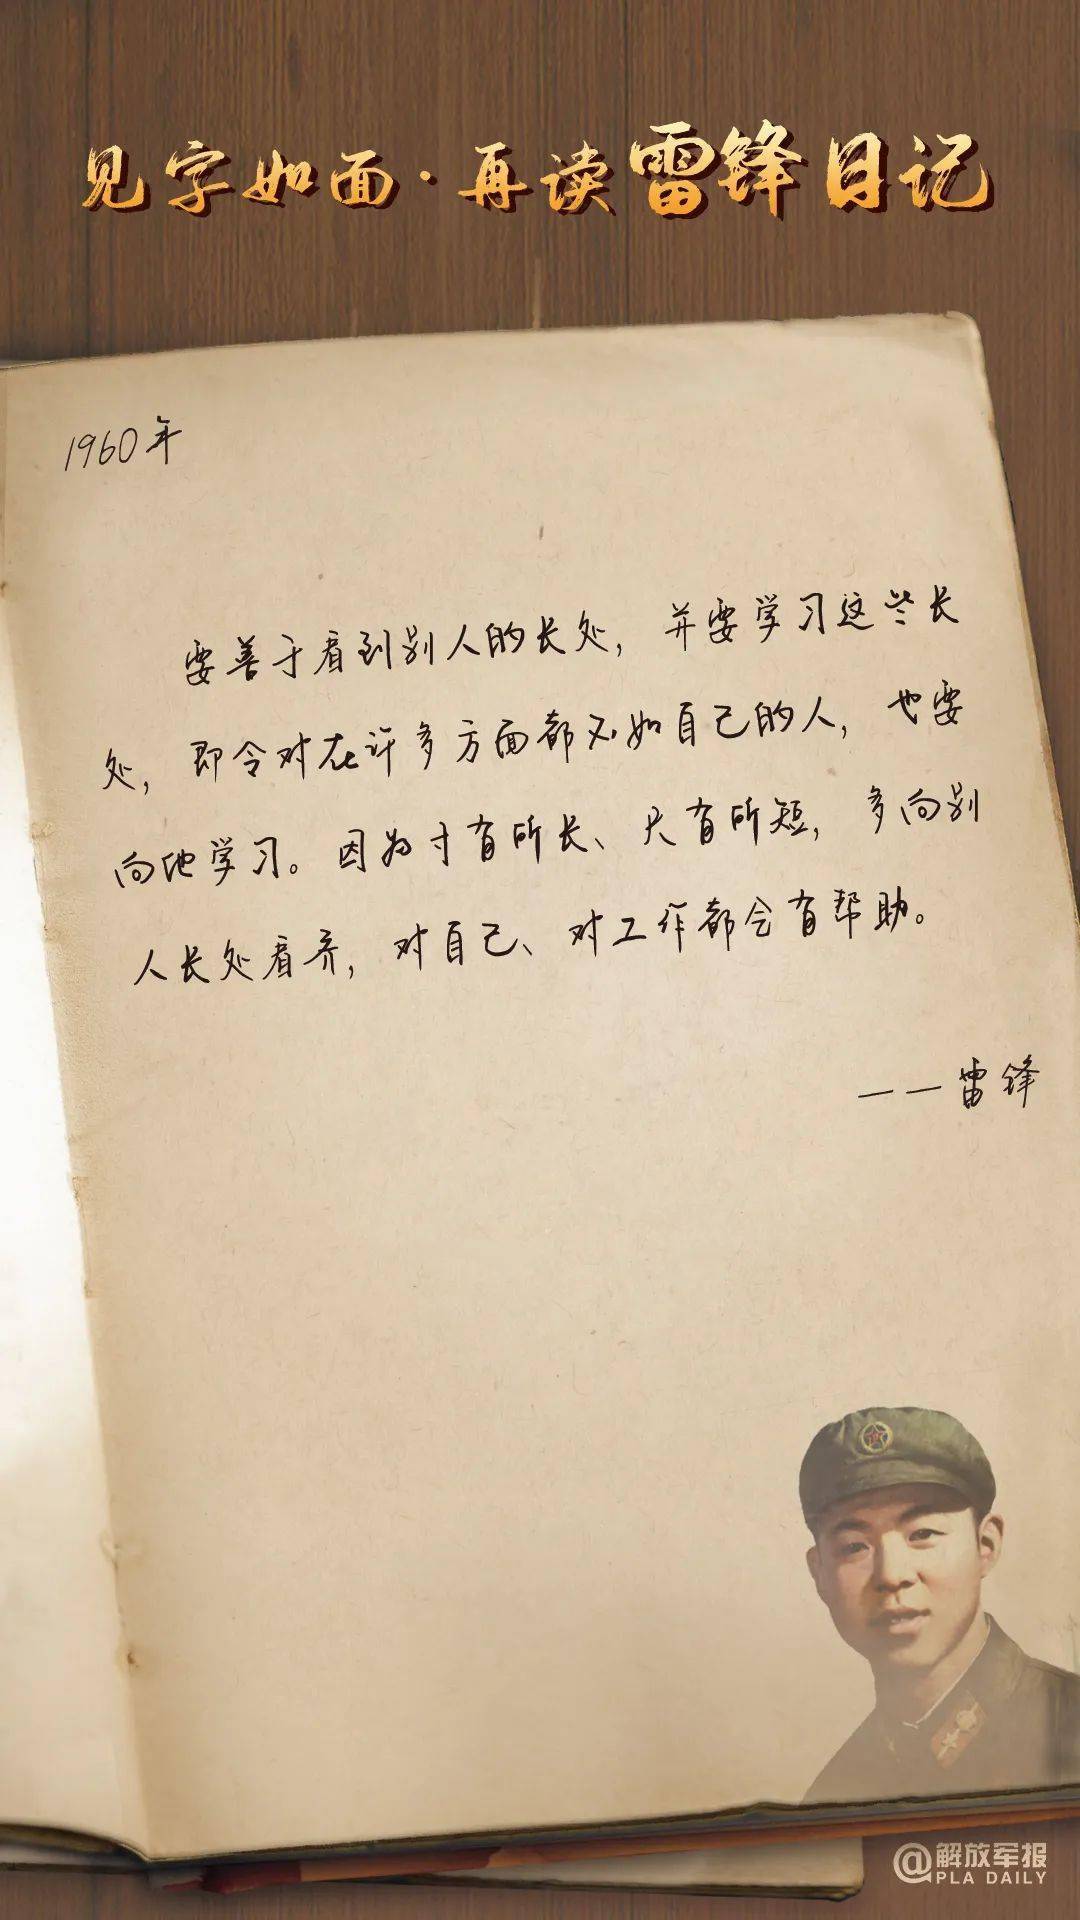 见字如面·再读雷锋日记
1960年
要善于看到别人的长处，并要学习这些长
处，即令对在许多方面都不如自己的人，也要
向他学习。因为寸有所长、尺有所短，多向别
人长处看齐，对自己、对工作都会有帮助。
——雷锋
@解放军报
PLA DAILY